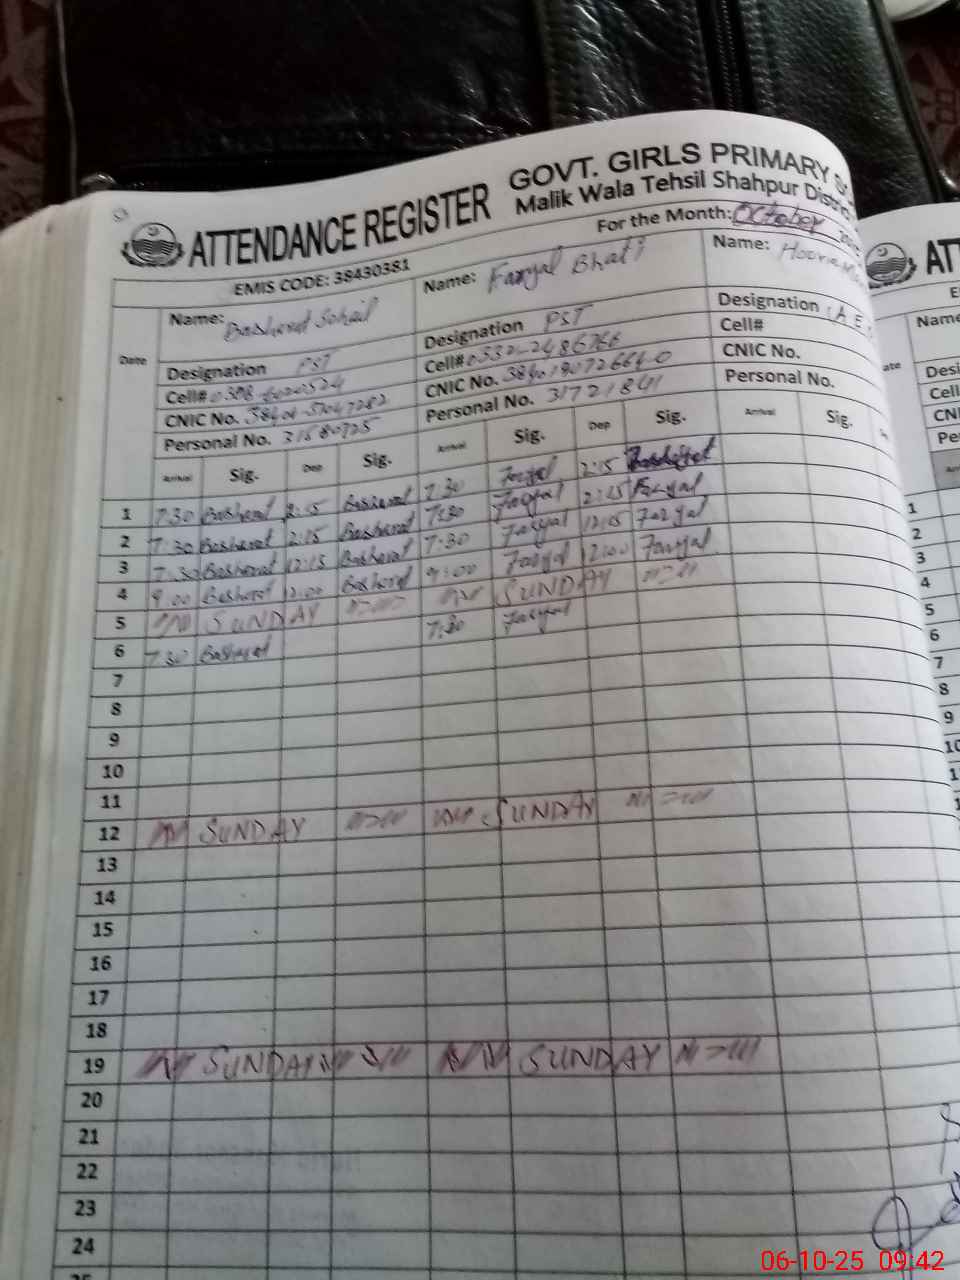 ATTENDANCE REGISTER GOVT. GIRLS PRIMARY
Malik Wala Tehsil Shahpur District
EMIS CODE: 38430381 For the Month: October
Date
Name: Basharat Sohail
Designation PST
Cell#
CNIC No.
Personal No. 31580725
Name: Faryal Bhatti
Designation PST
Cell# 0332-2486766
CNIC No. 3840190726640
Personal No. 31721841
Name: Hooria
Designation
Cell#
CNIC No.
Personal No.
Arrival Sig. Dep Sig. Arrival Sig. Dep Sig. Arrival Sig.
1 7:30 Basharat 2:15 Basharat 7:30 Faryal 2:15
2 7:30 Basharat 2:15 Basharat 7:30 Faryal 2:15 Faryal
3 7:30 Basharat 12:15 Basharat 7:30 Faryal 12:15 Faryal
4 9:00 Basharat 12:00 Basharat 9:00 Faryal 12:00 Faryal
5 SUNDAY SUNDAY
6 7:30 Basharat 7:30 Faryal
7
8
9
10
11
12 SUNDAY SUNDAY
13
14
15
16
17
18
19 SUNDAY SUNDAY
20
21
22
23
24
AT
Name
Desi
Cell
CN
Pe
1
2
3
4
5
6
7
8
9
10
06-10-25 09:42